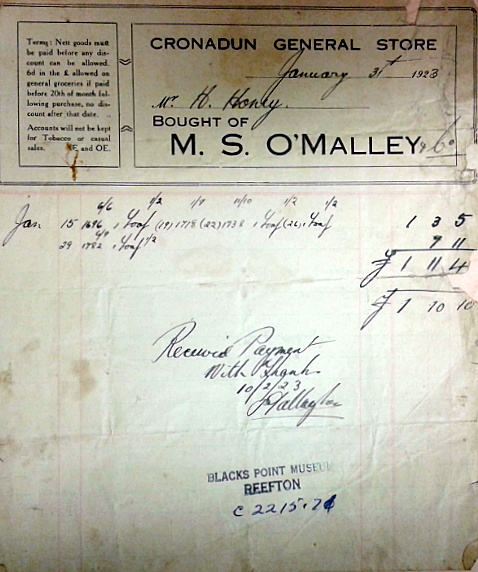 Terms: Nett goods must
be paid before any dis-
count can be allowed.
6d in the £ allowed on
general groceries if paid
before 20th of month fol-
lowing purchase, no dis-
count after that date.
Accounts will not be kept
for Tobacco or casual
sales. E and OE.
CRONADUN GENERAL STORE
January 31st 1923
Mr H. Honey.
BOUGHT OF
M. S. O'MALLEY
6/6 1/2 1/9 11/10 1/2 1/2
Jan 15 1696 1 Loaf (19) 1718 (22) 1738 1 Loaf (26) 1 Loaf 1 3 5
29 1782 1 Loaf 1/2 7 11
£ 1 11 4
£ 1 10 10
Received Payment
With Thanks
10/2/23
BLACKS POINT MUSEUM
REEFTON
C 2215.76